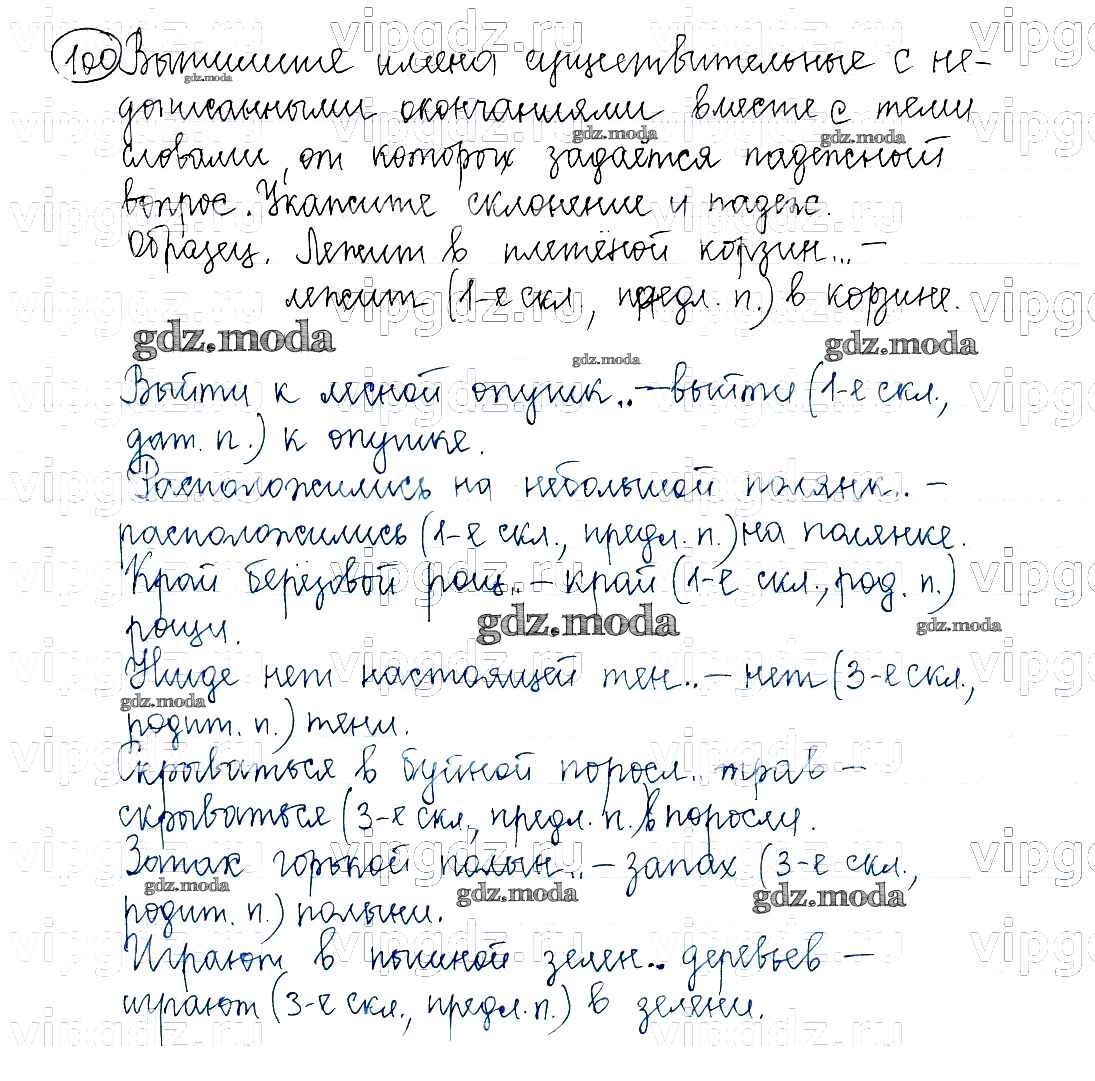 100 Выпишите имена существительные с не-
дописанными окончаниями вместе с теми
словами, от которых задаётся падежный
вопрос. Укажите склонение и падеж.
Образец. Лежит в плетёной корзин... –
лежит (1-е скл., предл. п.) в корзине.
gdz.moda
Выйти к лесной опушк.. – выйти (1-е скл.,
дат. п.) к опушке.
Расположились на небольшой полянк.. –
расположились (1-е скл., предл. п.) на полянке.
Край берёзовой рощ.. – край (1-е скл., род. п.)
рощи.
Нигде нет настоящей тен.. – нет (3-е скл.,
родит. п.) тени.
Скрываться в буйной поросл.. трав –
скрываться (3-е скл., предл. п.) в поросли.
Запах горькой полын.. – запах (3-е скл.,
родит. п.) полыни.
Играют в пышной зелен.. деревьев –
играют (3-е скл., предл. п.) в зелени.